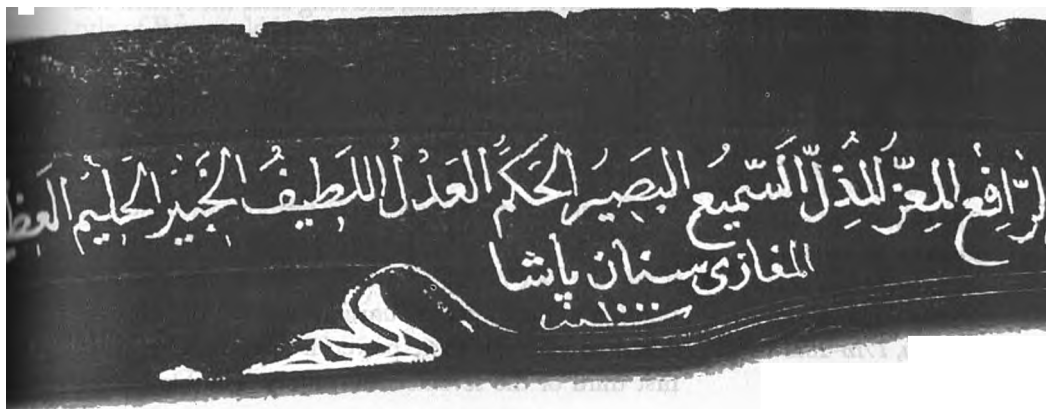 الرَّافِع المعِزُّ المُذِلّ السَّمِيعُ البَصِيرُ الحَكَمُ العَدْلُ اللطِيفُ الخَبِيرُ الحَلِيمُ العَظ
المغازى سنان پاشا
سنه ١٠٠٠